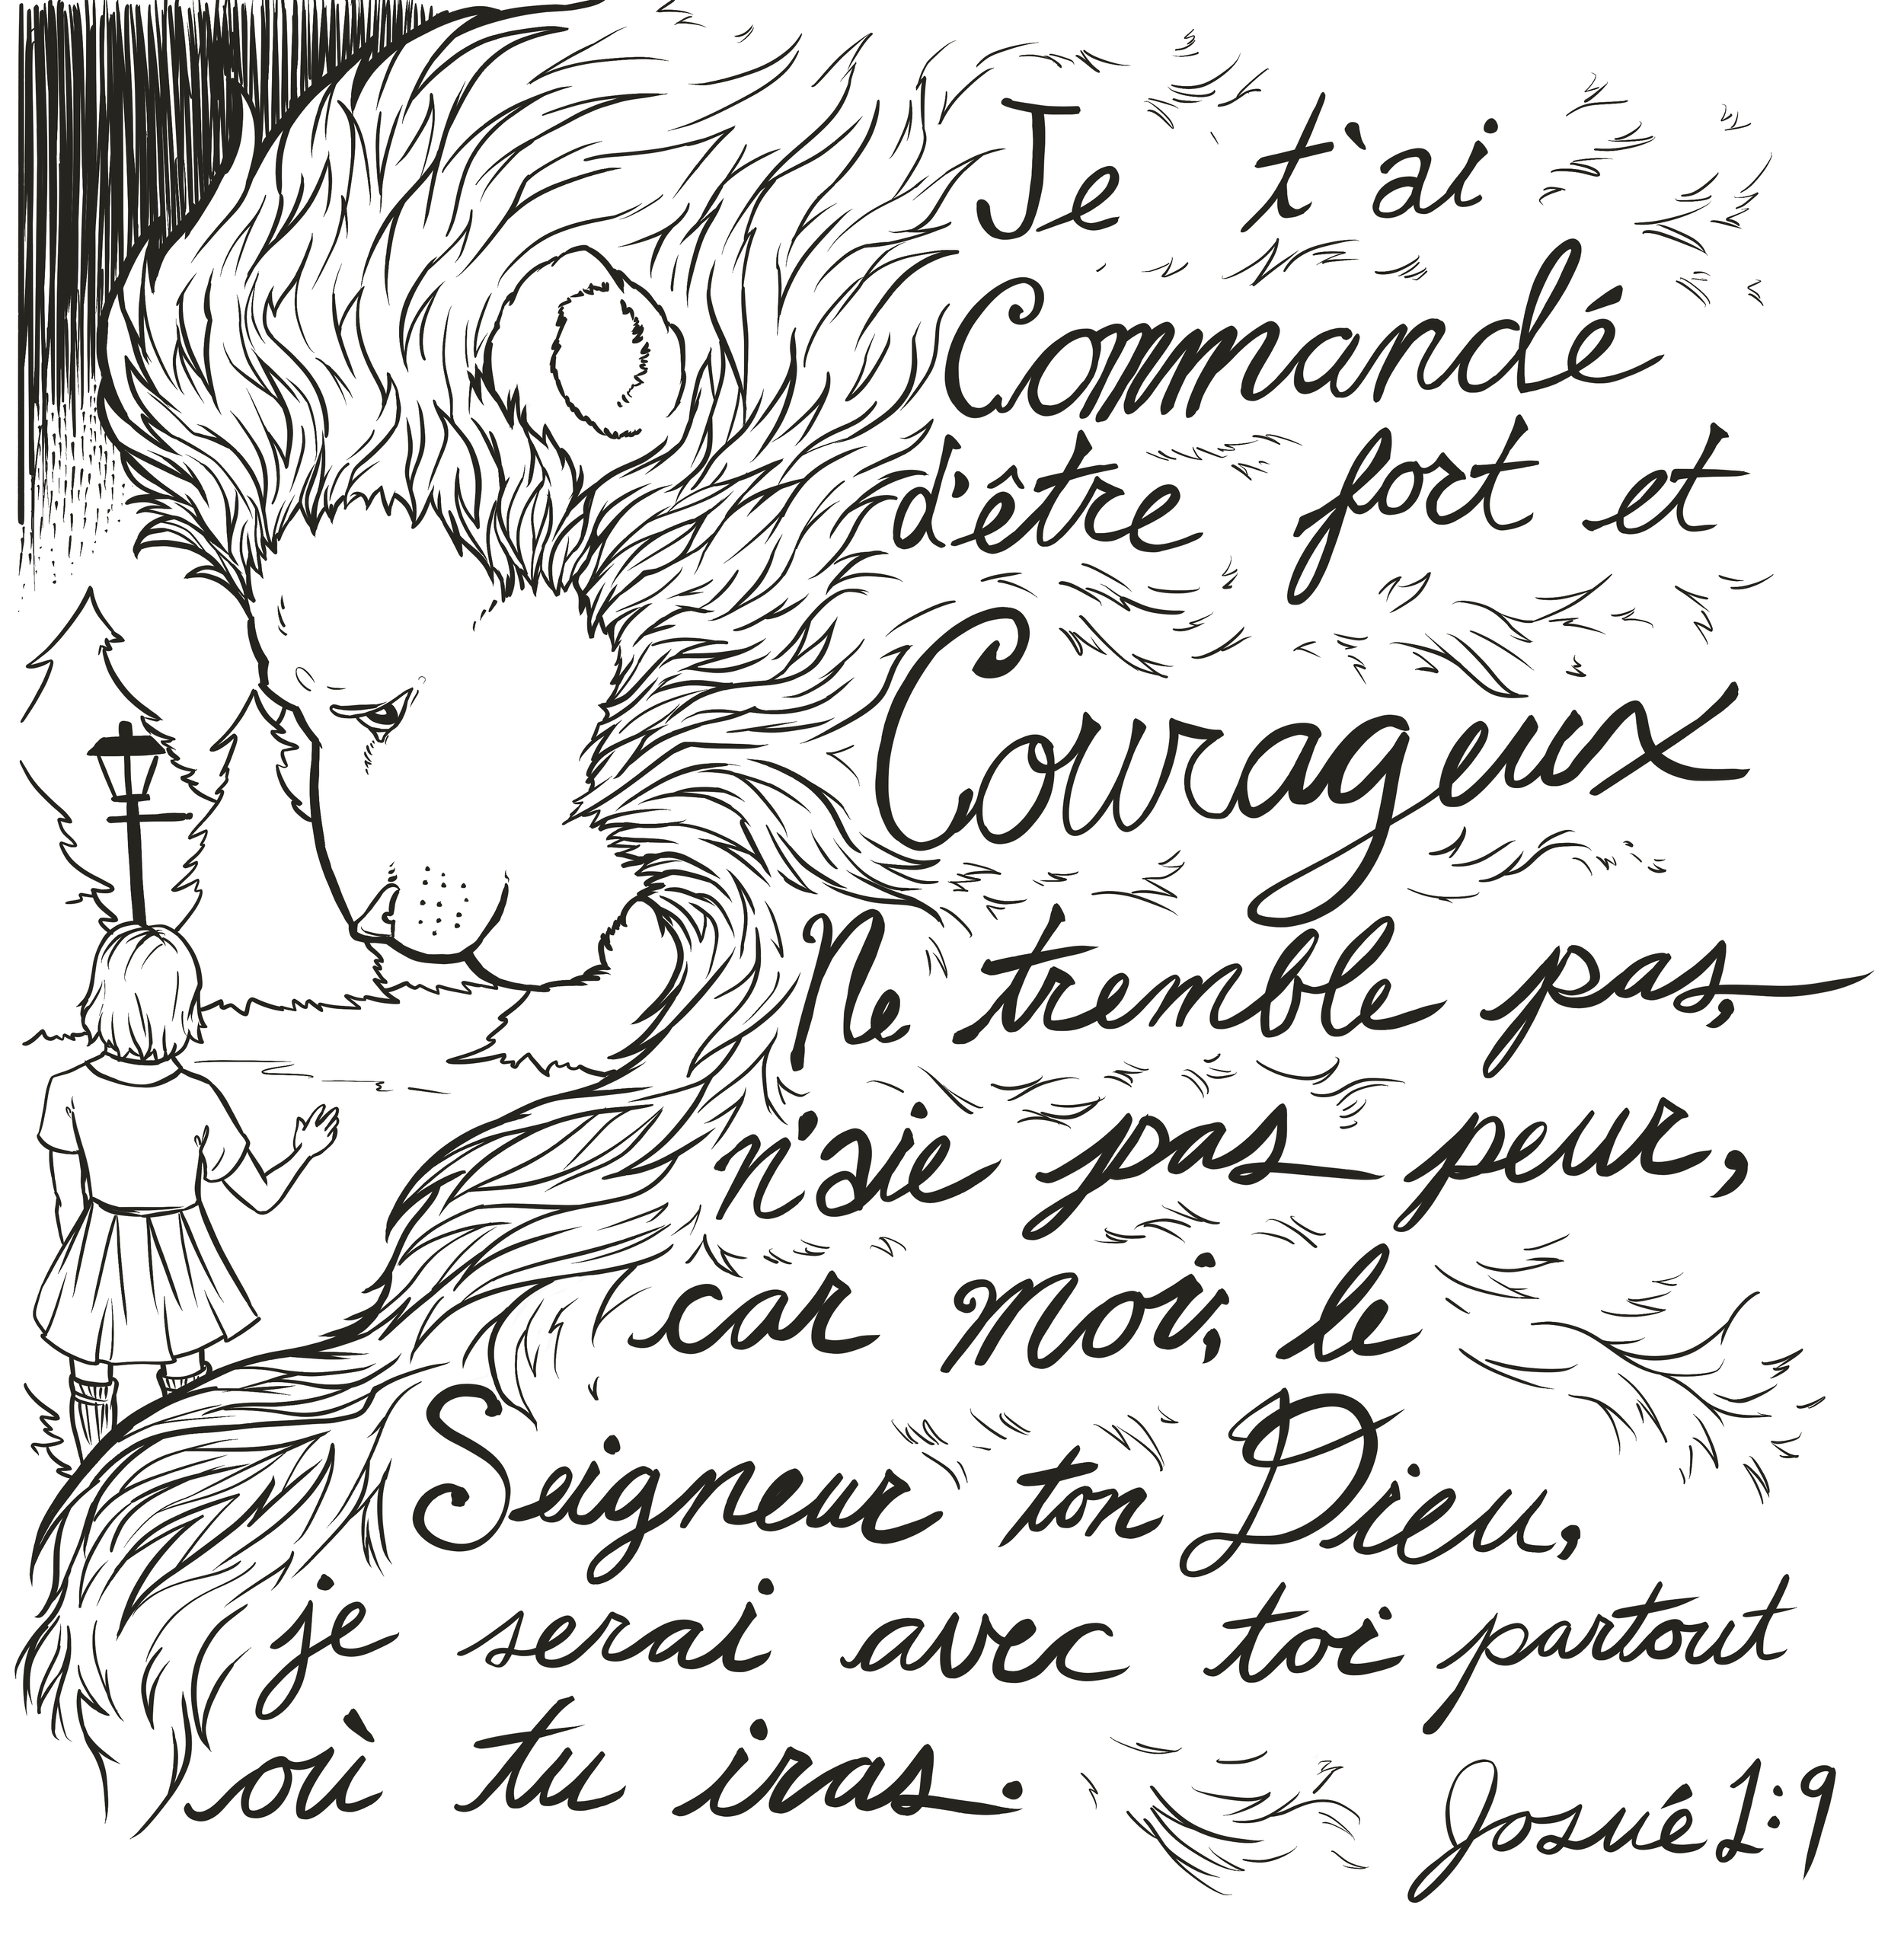 Je t'ai
Commandé
d'être fort et
Courageux
Ne tremble pas,
n'aie pas peur,
car Moi, le
Seigneur ton Dieu,
je serai avec toi partout
où tu iras.
Josué 1:9